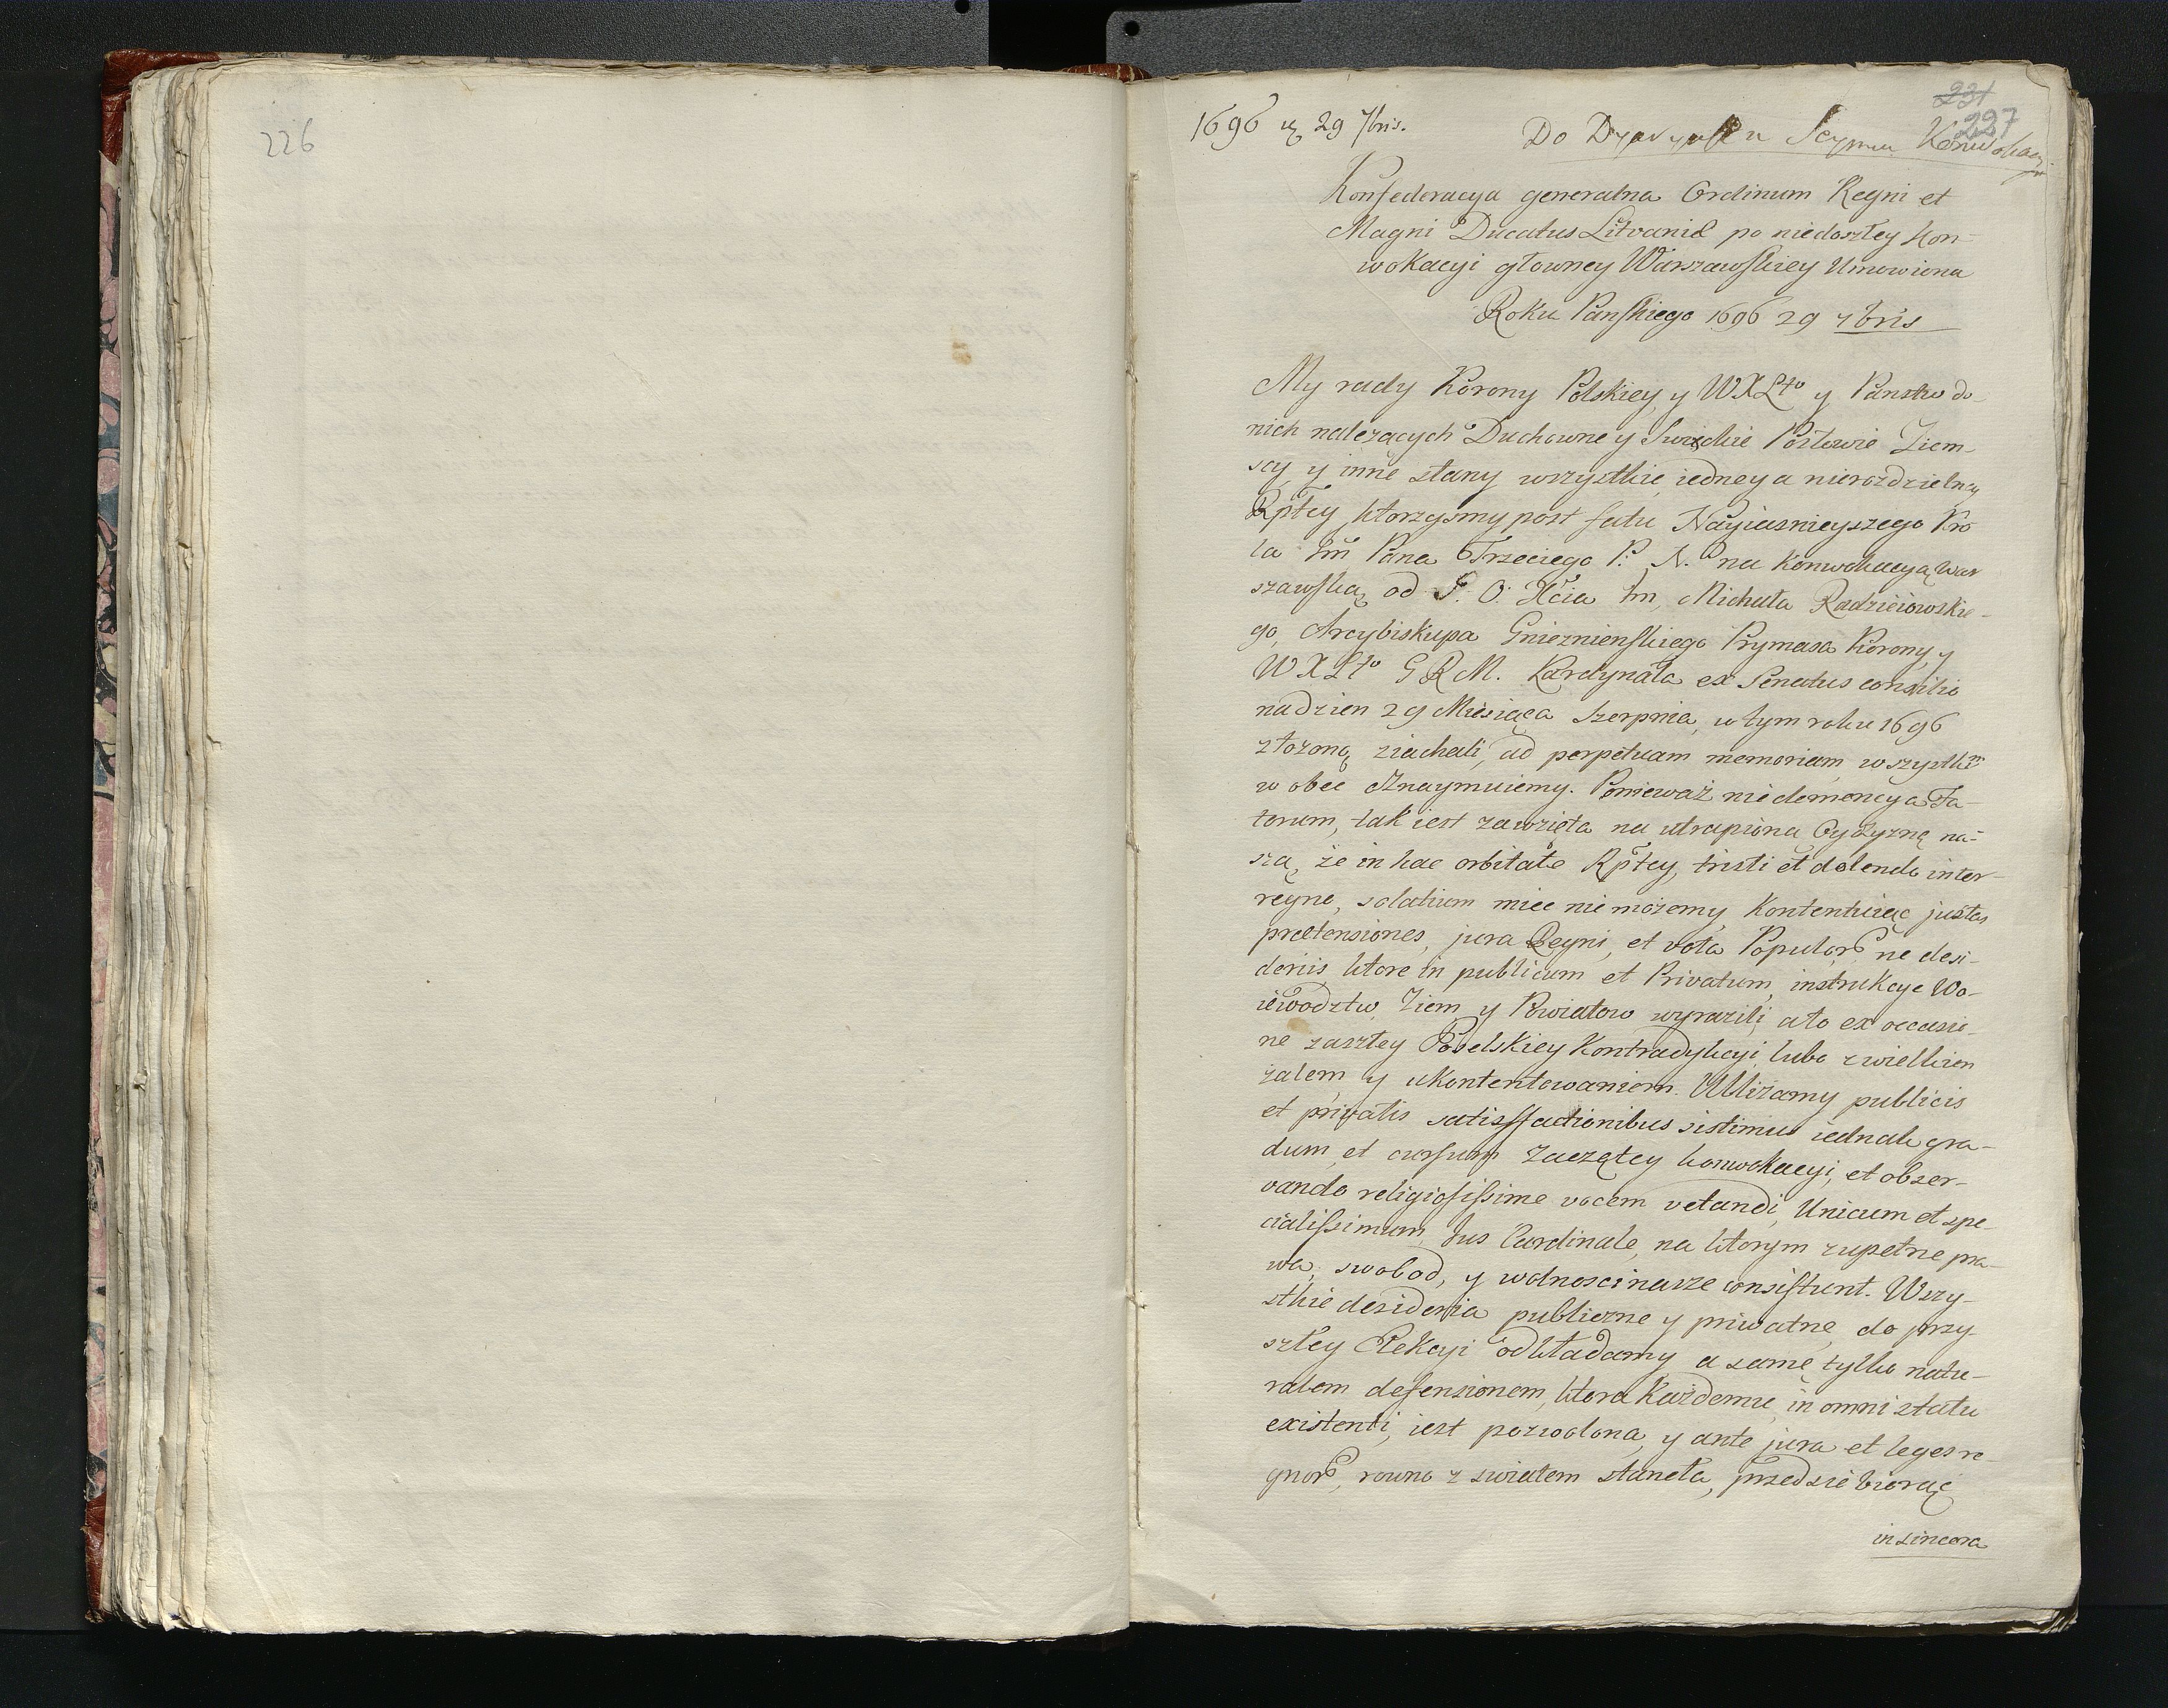 226
231
227
1696 z 29 7bris.
Do Dyaryuszu Seymu Konwokacyi
Konfederacya generalna Ordinum Regni et
Magni Ducatus Litvaniæ po niedoszłey Kon-
wokacyi głowney Warszawskiey Umowiona
Roku Panskiego 1696 29 7bris
My rady Korony Polskiey, y WXLto y Panstw do-
nich należących Duchowne y Swieckie Posłowie Ziem-
scy, y inne stany wszystkie, iedney a nierozdzielney
Rptey, ktorzysmy post fata Nayiasnieyszego Kro
la Jm Pana Trzeciego P. N. na Konwokacyą War
szawską od J. O. Xcia Jm, Michała Radzieiowskie-
go, Arcybiskupa Gnieznienskiego Prymasa Korony, y
WXLto G R M. Kardynała ex Senatus consilio
nadzien 29 Miesiąca Szerpnia, w tym roku 1696
złożoną ziachali, ad perpetuam memoriam, wszystkim
w obec Oznaymuiemy. Ponieważ nieclemencya Fa-
torum, tak iest zawzięta na utrapioną Oyczyznę na-
szą, że in hac orbitate Rptey, tristi et dolendo inter-
regno, solatium miec nie możemy, Kontentuiąc justas
prætensiones, jura Regni, et vota Popular ne desi-
deriis, ktore in publicum et Privatum, instrukcye Wo-
iewodztw, Ziem, y Powiatow wyrazili, a to ex occasio-
ne zaszłey Poselskiey Kontradykcyi, lubo z wielkiem
żalem y ukontentowaniem. Ubliżamy publicis
et privatis satisffactionibus sistimus iednak gra-
dum, et cursum zaczętey konwokacyi, et obser-
vando religiosissime vocem vetandi, Unicum et spe-
cialissimum Jus Cardinale, na ktorym zupełne pra-
wa, swobod, y wolnosci nasze consistunt. Wszy-
stkie desideria publiczne y priwatne, do przy-
szłey Elekcyi odkładamy a samę tylko natu-
ralem defensionem, ktora każdemu, in omni statu
existenti, iest pozwolona, y ante jura et leges re-
gnor, rowno z swiatem stanęła, przedsie biorąc
in sincera